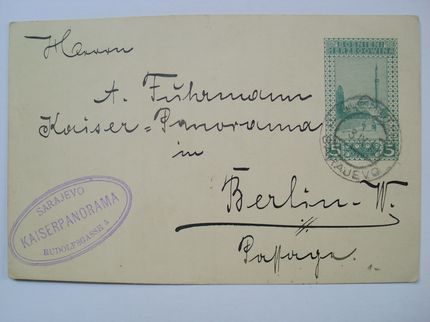 Herrn
A. Fuhrmann
Kaiser-Panorama
in
Berlin-W.
Passage.
BOSNIEN-
HERZEGOWINA
5 5
SARAJEVO
KAISERPANORAMA
RUDOLFSGASSE 4